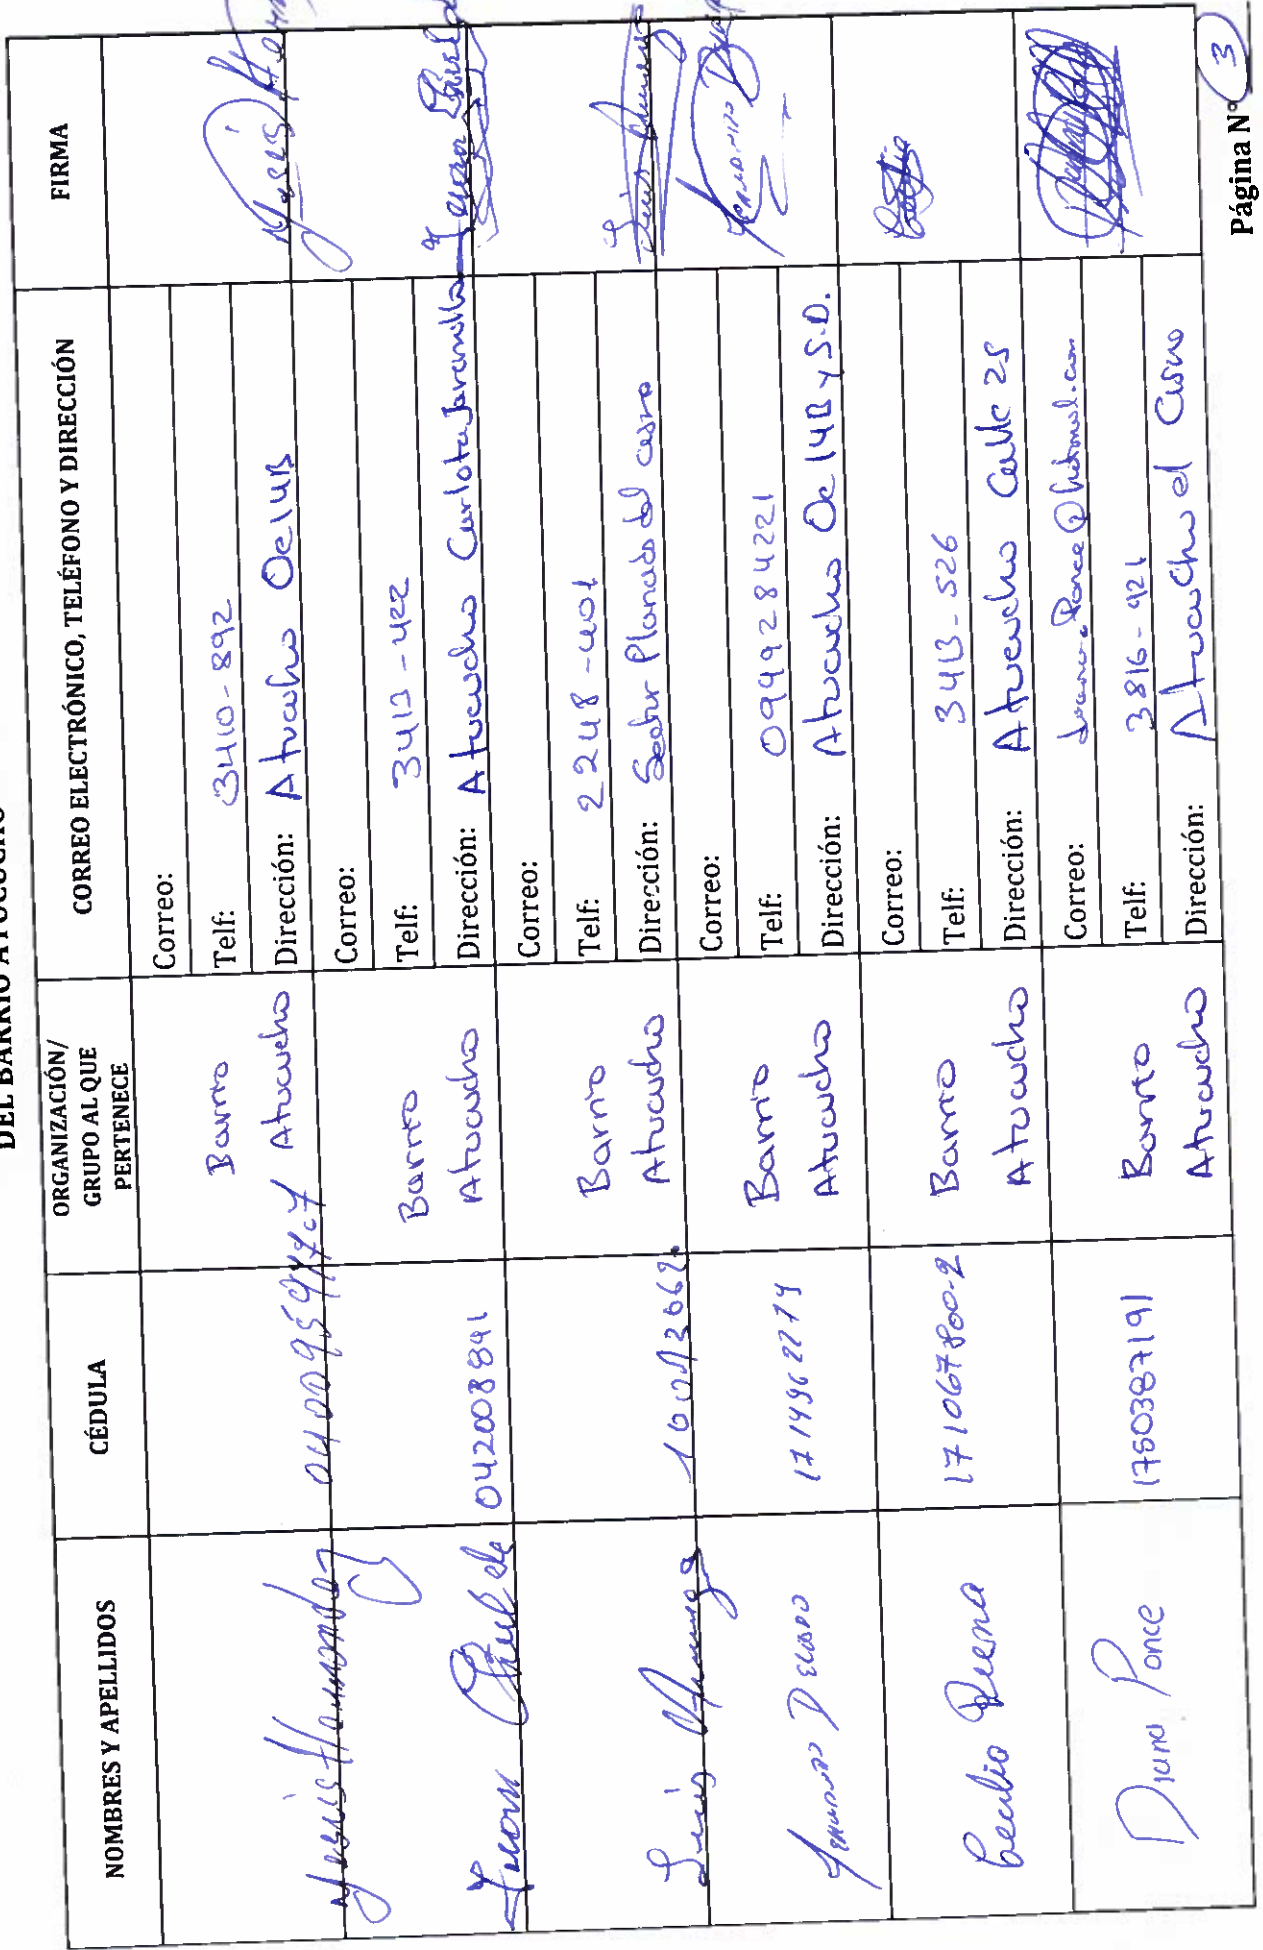 DEL BARRIO ATUCUCHO
NOMBRES Y APELLIDOS
CÉDULA
ORGANIZACIÓN/
GRUPO AL QUE
PERTENECE
CORREO ELECTRÓNICO, TELÉFONO Y DIRECCIÓN
FIRMA
Barrio
Atucucho
Correo:
Telf: 3410-892
Dirección: Atucucho Oe14B
Juan
042008841
Barrio
Atucucho
Correo:
Telf: 3413-422
Dirección: Atucucho Carlota Jaramillo
Luis
Barrio
Atucucho
Correo:
Telf: 2248-401
Dirección: Sector Planada del cisne
Delgado
1714962279
Barrio
Atucucho
Correo:
Telf: 0999284221
Dirección: Atucucho Oe14B y S.D.
Cecilia
171067800-2
Barrio
Atucucho
Correo:
Telf: 3413-526
Dirección: Atucucho Calle 25
Diana Ponce
1750387191
Barrio
Atucucho
Correo:
Telf: 3816-421
Dirección: Atucucho el Cisne
Página N° 3